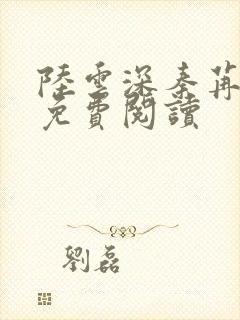 陸雲深秦苒
免費閱讀
劉磊